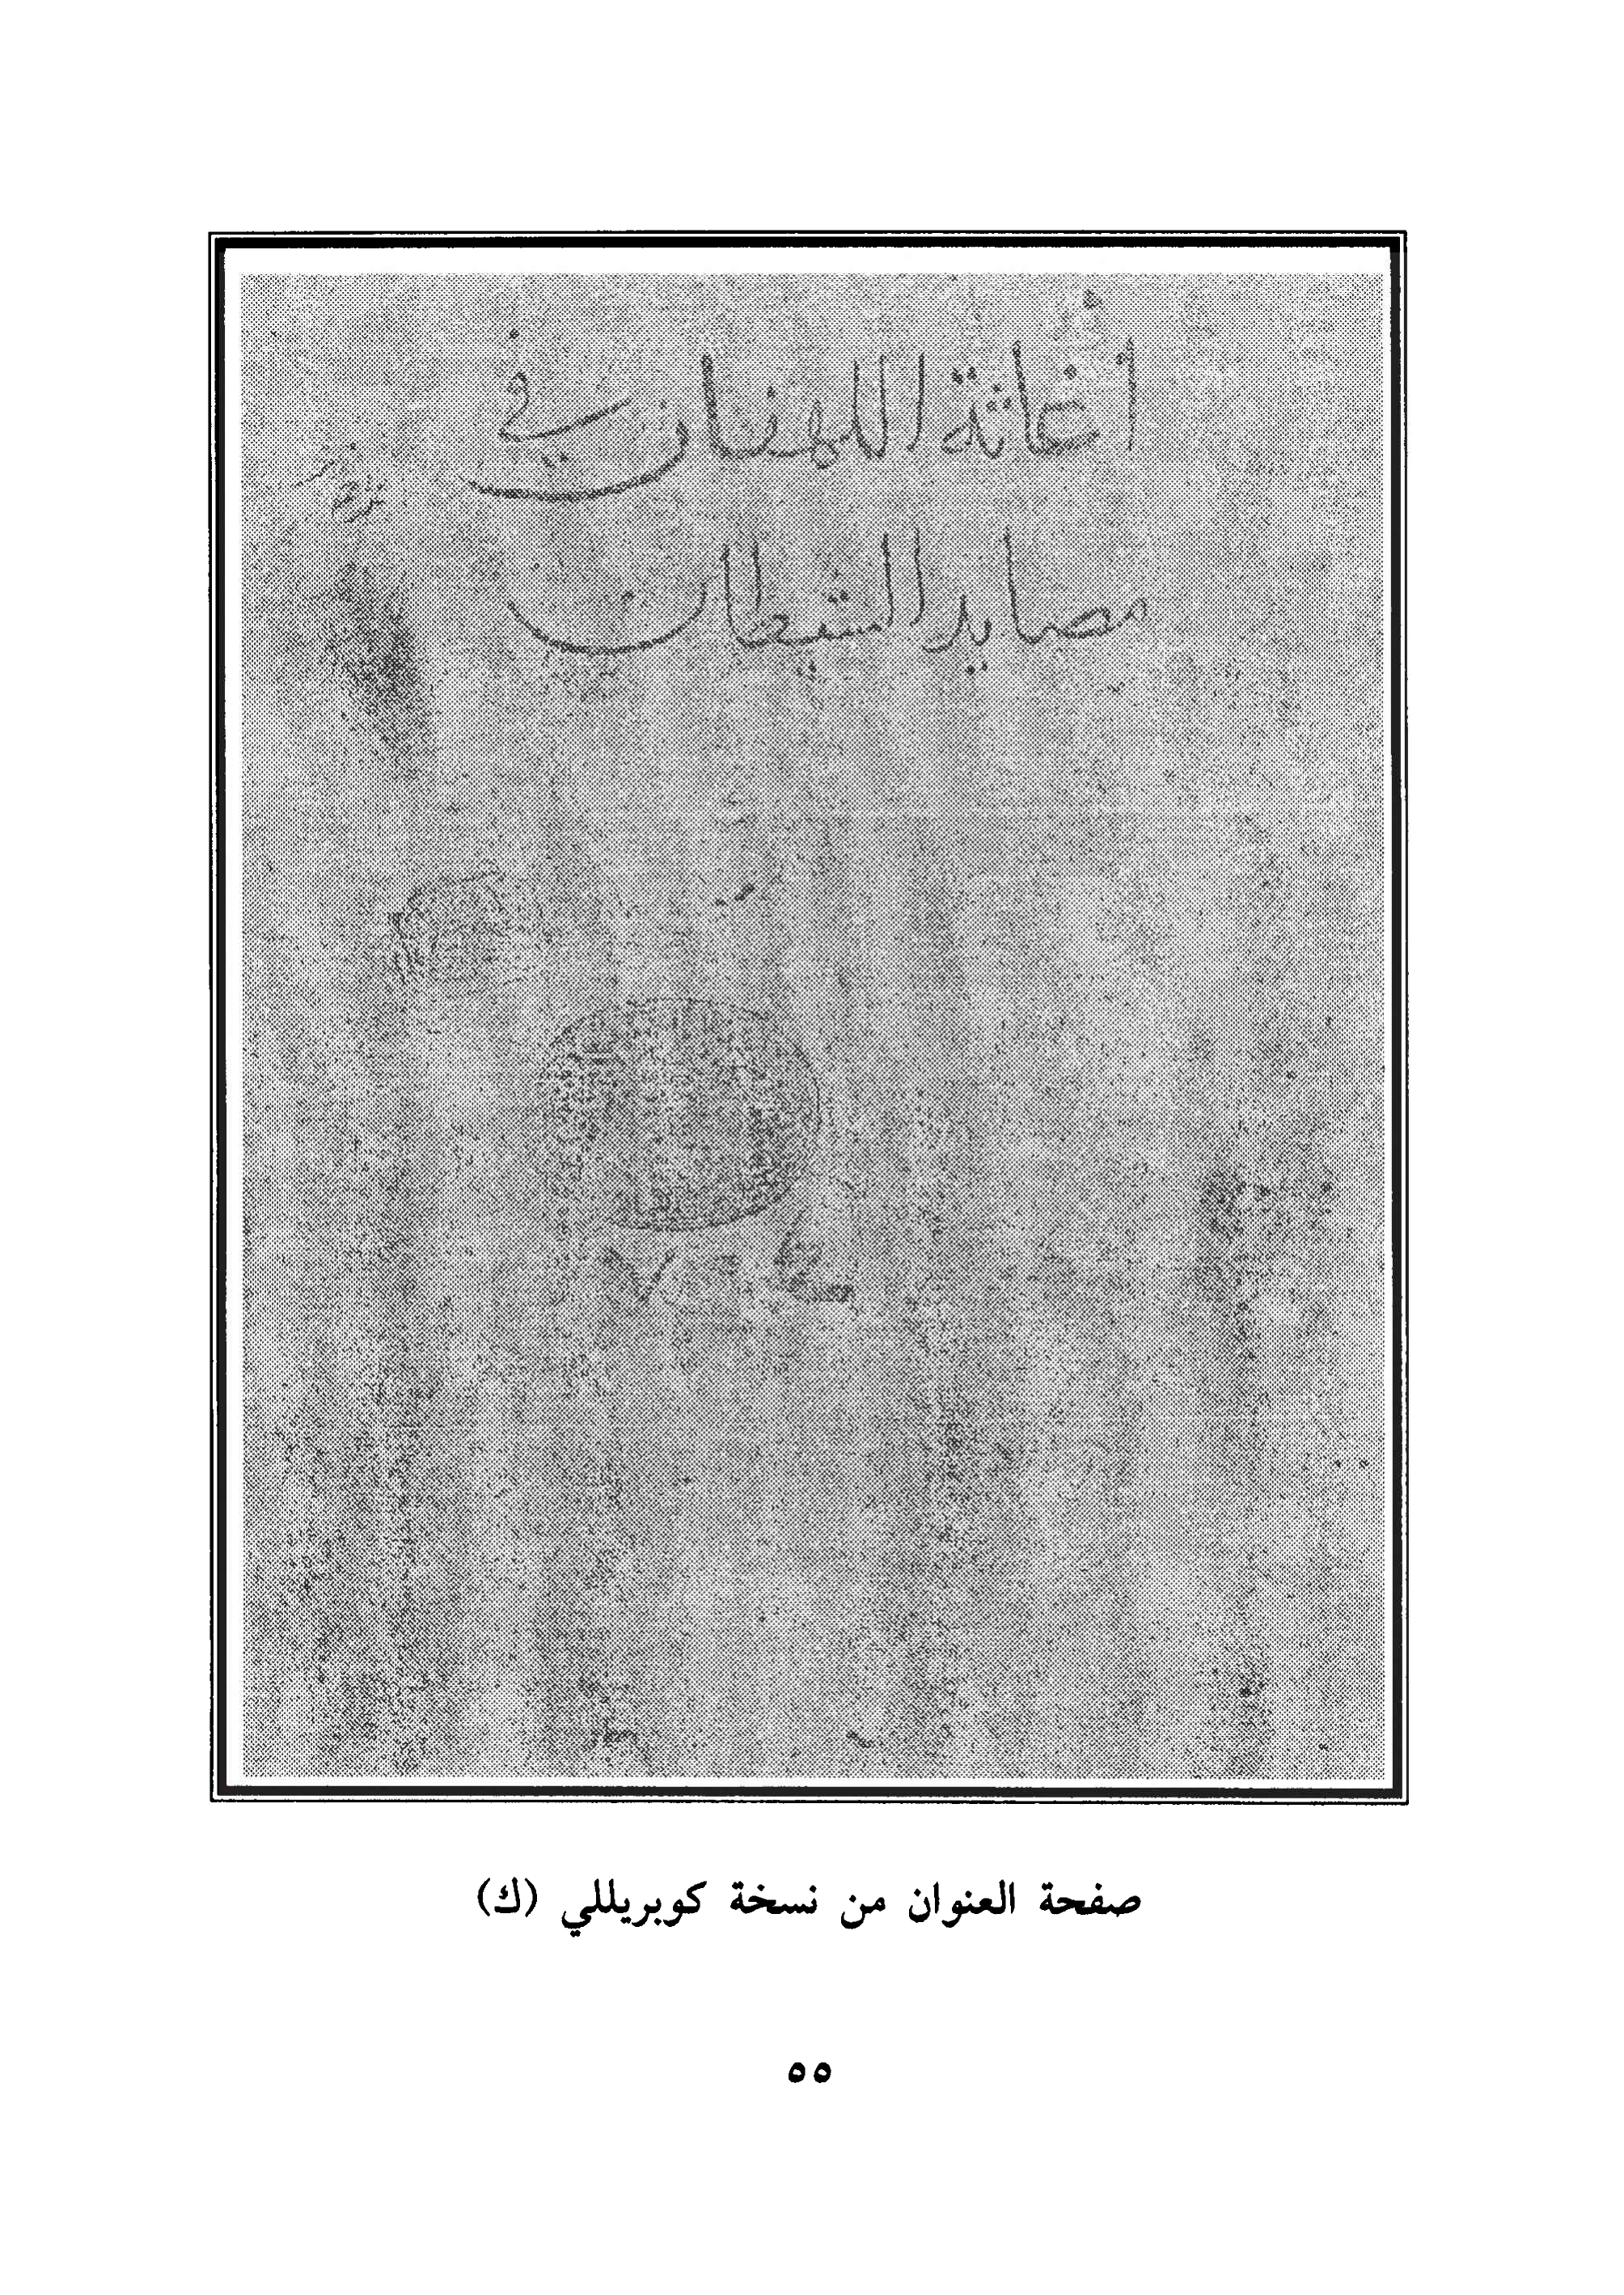 اغاثة اللهفان في
مصايد الشيطان
صفحة العنوان من نسخة كوبريللي (ك)
٥٥